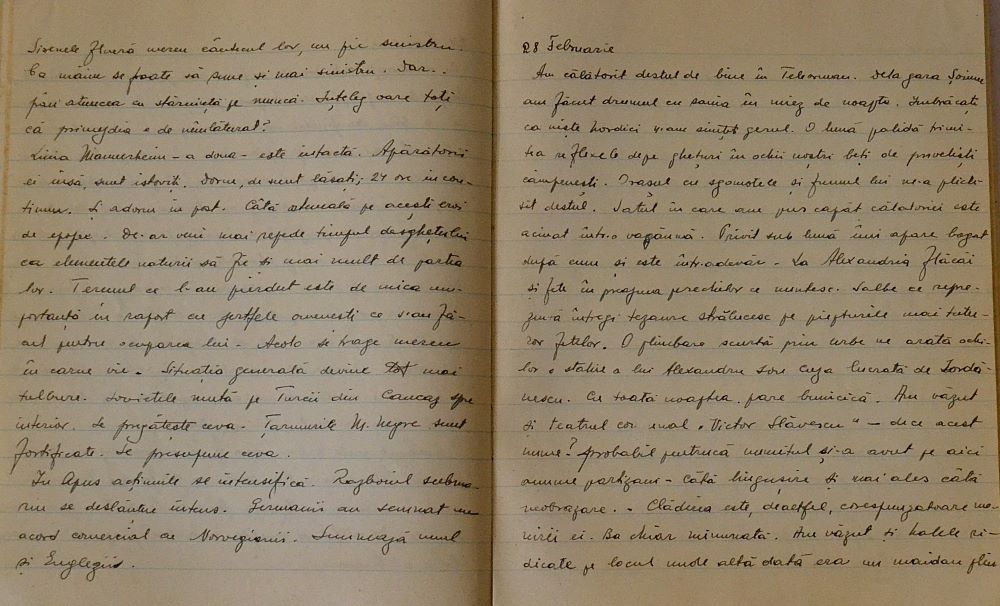 Sirenele flueră mereu cântecul lor, un pic sinistru.
Ca mâine se poate să sune și mai sinistru. Dar..
până atuncea cu stăruință pe muncă. Înțeleg oare toți
că primejdia e de neînlăturat?
Linia Mannerheim – a doua – este intactă. Apărătorii
ei însă, sunt istoviți. Dorm, de sunt lăsați, 24 ore in con-
tinuu. Și adorm în post. Câtă oteneală pe acești eroi
de epopee. De-ar veni mai repede timpul desghețului
ca elementele naturii să fie și mai mult de partea
lor. Terenul ce l-au pierdut este de mica im-
portanță în raport cu jertfele omenești ce s-au fă-
cut pentru ocuparea lui. Acolo se trage mereu
în carne vie. Situația generală devine tot mai
tulbure. Sovietele mută pe Turcii din Caucaz spre
interior. Se pregătește ceva. Țărmurile M. Negre sunt
fortificate. Se presupune ceva.
În Apus acțiunile se intensifică. Razboiul subma-
rin se deslănțue intens. Germanii au semnat un
acord comercial cu Norvegienii. Semnează unul
și Englezii.
28 Februarie
Am călătorit destul de bine în Teleorman. Dela gara
am făcut drumul cu sania în miez de noapte. Îmbrăcați
ca niște nordici n-am simțit gerul. O lună palidă trimi-
tea reflexele depe ghețuri în ochii noștri beți de priveliști
câmpenești. Orașul cu sgomotele și fumul lui ne-a plicti-
sit destul. Satul în care am pus capăt călătoriei este
aciuat într-o văgăună. Privit sub lună îmi apare bogat
după cum și este într-adevăr. La Alexandria flăcăi
și fete în preajma preoților ce nuntesc. Salbe ce repre-
zintă întregi tezaure strălucesc pe piepturile mai tutu-
ror fetelor. O plimbare scurtă prin urbe ne arată ochi-
lor o statue a lui Alexandru Ion Cuza lucrată de Iordă-
nescu. Cu toată noaptea pare bunicică. Am văzut
și teatrul comunal „Victor Slăvescu” – de ce acest
nume? Probabil pentrucă numitul și-a avut pe aici
anume partizani. Câtă lingușire și mai ales câtă
neobrăzare. – Clădirea este, dealtfel, corespunzatoare me-
nirii ei. Ba chiar minunată. Am văzut și halele ri-
dicate pe locul unde altă dată era un maidan plin